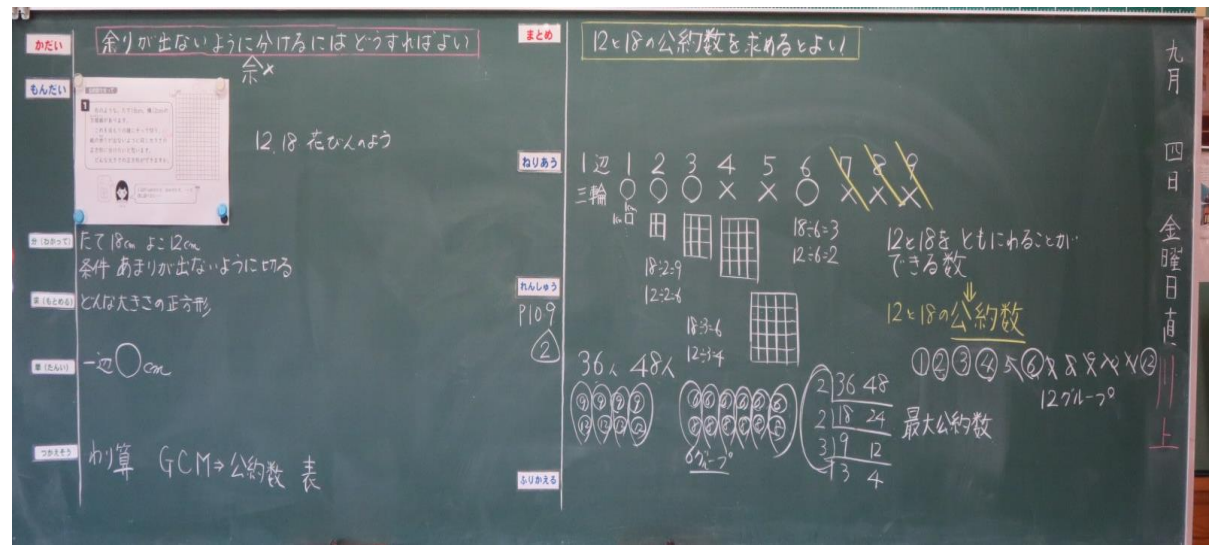 かだい
余りが出ないように分けるにはどうすればよい
余×
もんだい
1
12,18 花びんのよう
分(わかって)
たて18cm よこ12cm
条件 あまりが出ないように切る
求(もとめる)
どんな大きさの正方形
単(たんい)
一辺○cm
つかえそう
わり算 GCM⇒公約数 表
まとめ
12と18の公約数を求めるとよい
ねりあう
1辺 1 2 3 4 5 6 7 8 9
○ ○ ○ × × ○ × × ×
1cm
1cm
18÷2=9
12÷2=6
18÷3=6
12÷3=4
18÷6=3
12÷6=2
12と18を ともにわることが
できる数
⇓
12と18の公約数
れんしゅう
P109
2
36人 48人
9 9 9 9
12 12 12 12
6 6 6 6 6 6
8 8 8 8 8 8
6グループ
2 36 48
2 18 24
3 9 12
3 4
最大公約数
① ② ③ ④ 5 ⑥ 7 8 9 10 11 ⑫
12グループ
ふりかえる
九月 四日 金曜日 直
上